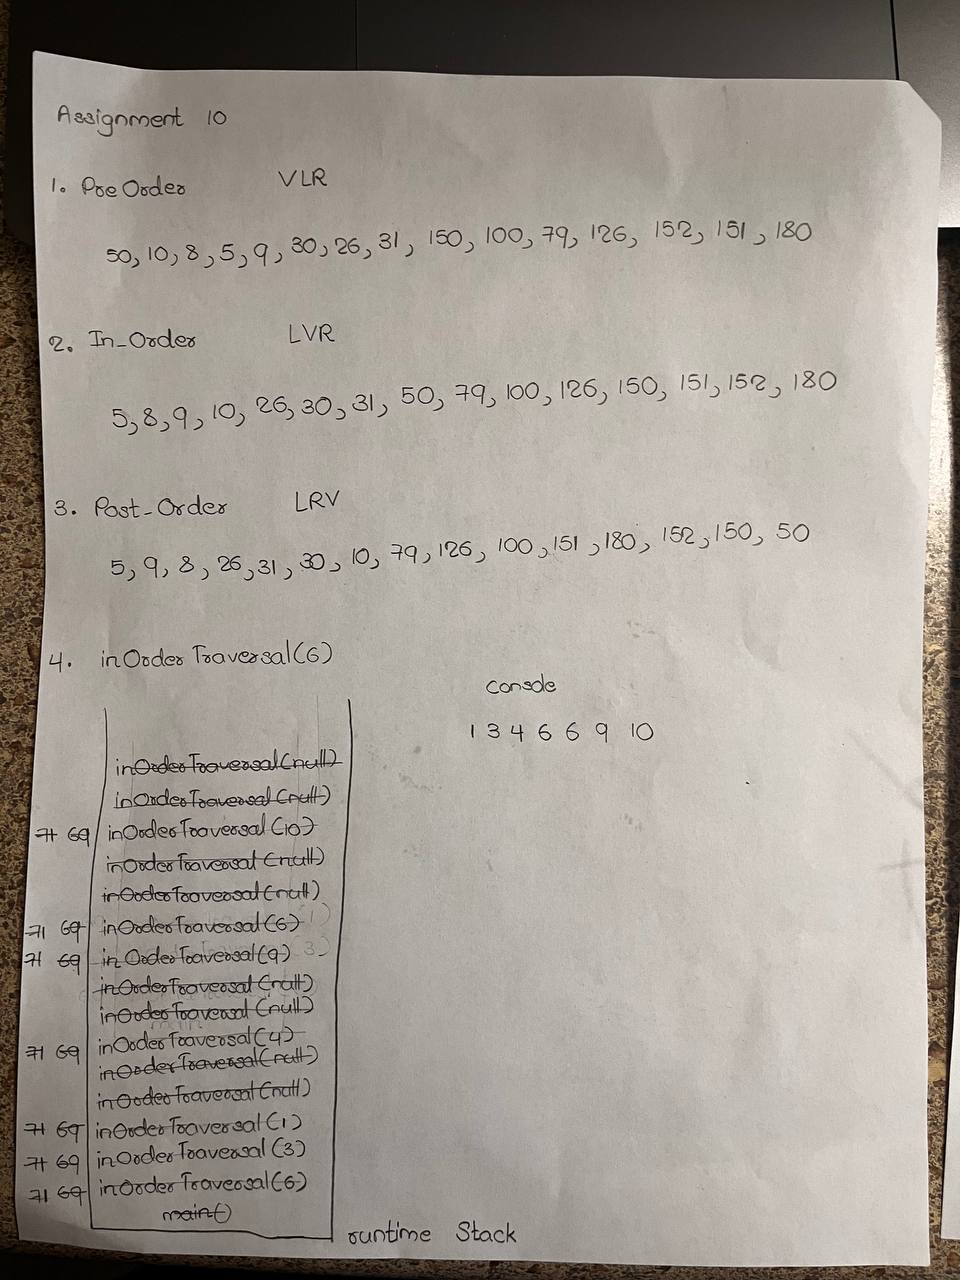 Assignment 10
1. PreOrder VLR
50, 10, 8, 5, 9, 30, 26, 31, 150, 100, 79, 126, 152, 151, 180
2. In-Order LVR
5, 8, 9, 10, 26, 30, 31, 50, 79, 100, 126, 150, 151, 152, 180
3. Post-Order LRV
5, 9, 8, 26, 31, 30, 10, 79, 126, 100, 151, 180, 152, 150, 50
4. inOrderTraversal(6)
console
1 3 4 6 6 9 10
inOrderTraversal(null)
inOrderTraversal(null)
71 69 inOrderTraversal(10)
inOrderTraversal(null)
inOrderTraversal(null)
71 69 inOrderTraversal(6)
71 69 inOrderTraversal(9)
inOrderTraversal(null)
inOrderTraversal(null)
71 69 inOrderTraversal(4)
inOrderTraversal(null)
inOrderTraversal(null)
71 69 inOrderTraversal(1)
71 69 inOrderTraversal(3)
71 69 inOrderTraversal(6)
main()
runtime Stack